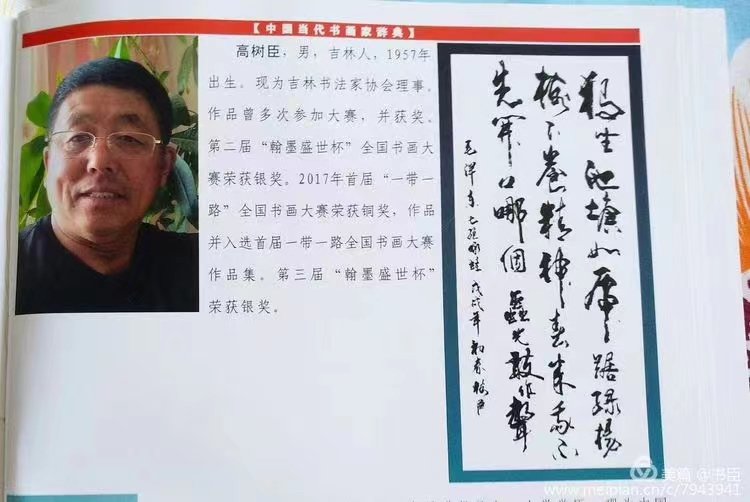 【中国当代书画家辞典】
高树臣，男，吉林人，1957年
出生。现为吉林书法家协会理事。
作品曾多次参加大赛，并获奖。
第二届“翰墨盛世杯”全国书画大
赛荣获银奖。2017年首届“一带一
路”全国书画大赛荣获铜奖，作品
并入选首届一带一路全国书画大赛
作品集。第三届“翰墨盛世杯”
荣获银奖。
独坐池塘如虎踞绿杨
树下养精神春来我不
先开口哪個蟲儿敢作聲
毛泽东七绝咏蛙戊戌年初春树臣
美篇 @书臣
www.meipian.cn/c/7943941